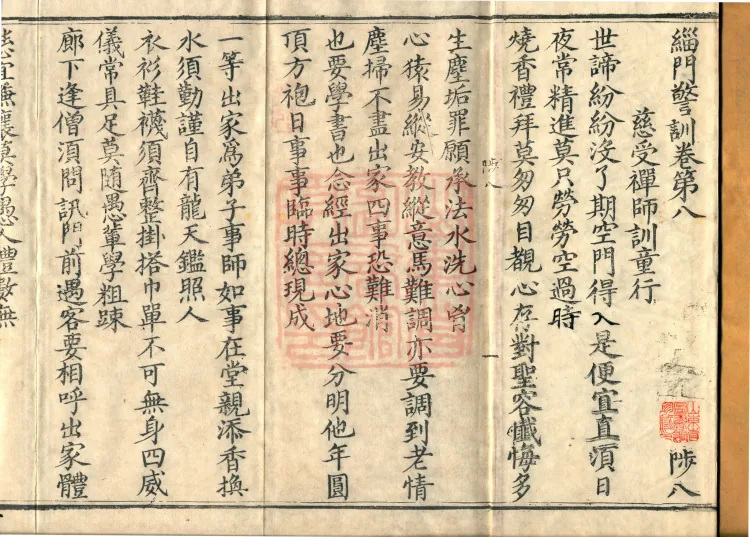 緇門警訓卷第八
陟八
慈受禪師訓童行
世諦紛紛沒了期空門得入是便宜直須日
夜常精進莫只勞勞空過時
燒香禮拜莫匆匆目覩心存對聖容懺悔多
陟八
一
生塵垢罪願承法水洗心胷
心猿易縱安教縱意馬難調亦要調到老情
塵掃不盡出家四事恐難消
也要學書也念經出家心地要分明他年圓
頂方袍日事事臨時總現成
一等出家爲弟子事師如事在堂親添香換
水須勤謹自有龍天鑑照人
衣衫鞋襪須齊整掛搭巾單不可無身四威
儀常具足莫随愚輩學粗踈
廊下逢僧須問訊門前遇客要相呼出家體
態宜謙讓莫學愚人禮數無